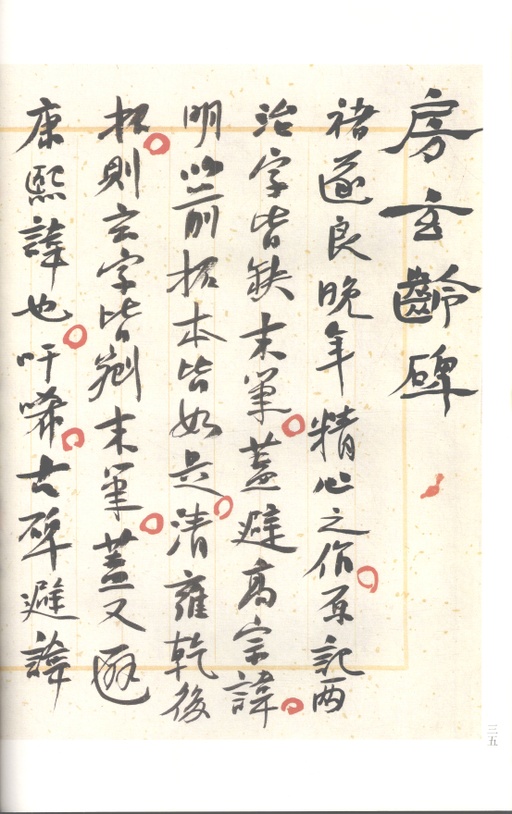 房玄齡碑
褚遂良晚年精心之作原記兩
治字皆缺末筆蓋避高宗諱
明以前拓本皆如是清雍乾後
拓則玄字皆剜末筆蓋又避
康熙諱也吁嘻古碑避諱
三五